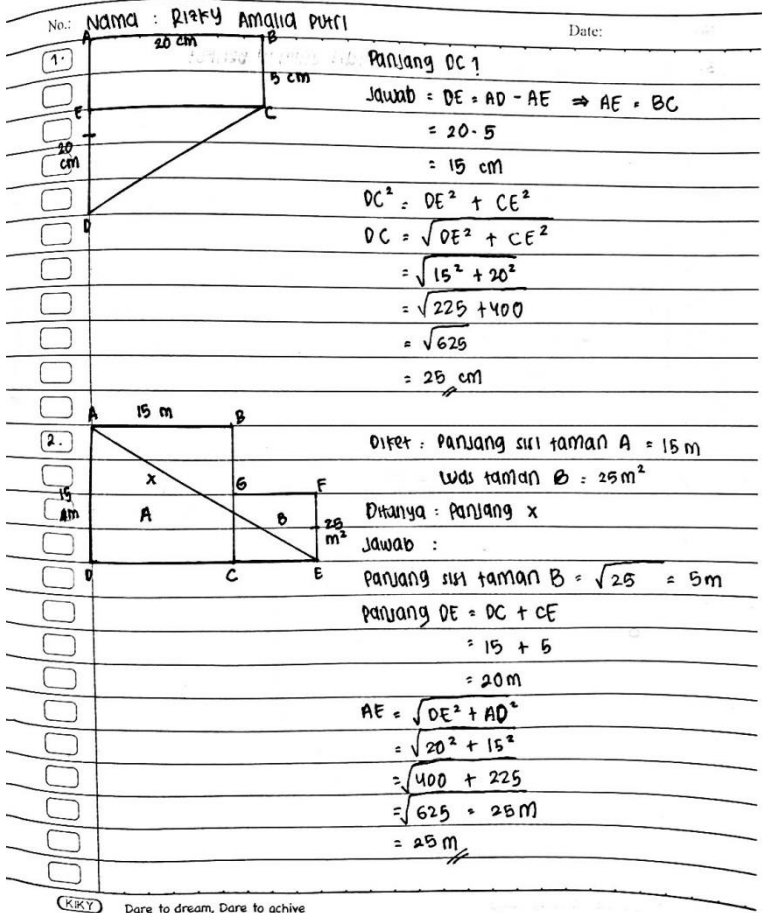 No.: Nama : Rizky Amalia Putri
Date:
1.
A
20 cm
B
5 cm
E
C
20
cm
D
Panjang DC ?
Jawab = DE = AD - AE ⇒ AE = BC
= 20 - 5
= 15 cm
DC² = DE² + CE²
DC = √DE² + CE²
= √15² + 20²
= √225 + 400
= √625
= 25 cm
2.
A
15 m
B
x
G
F
15
m
A
B
25
m²
D
C
E
Diket : Panjang sisi taman A = 15 m
Luas taman B = 25 m²
Ditanya : Panjang x
Jawab :
Panjang sisi taman B = √25 = 5m
Panjang DE = DC + CE
= 15 + 5
= 20 m
AE = √DE² + AD²
= √20² + 15²
= √400 + 225
= √625 = 25 m
= 25 m
KIKY Dare to dream, Dare to achive